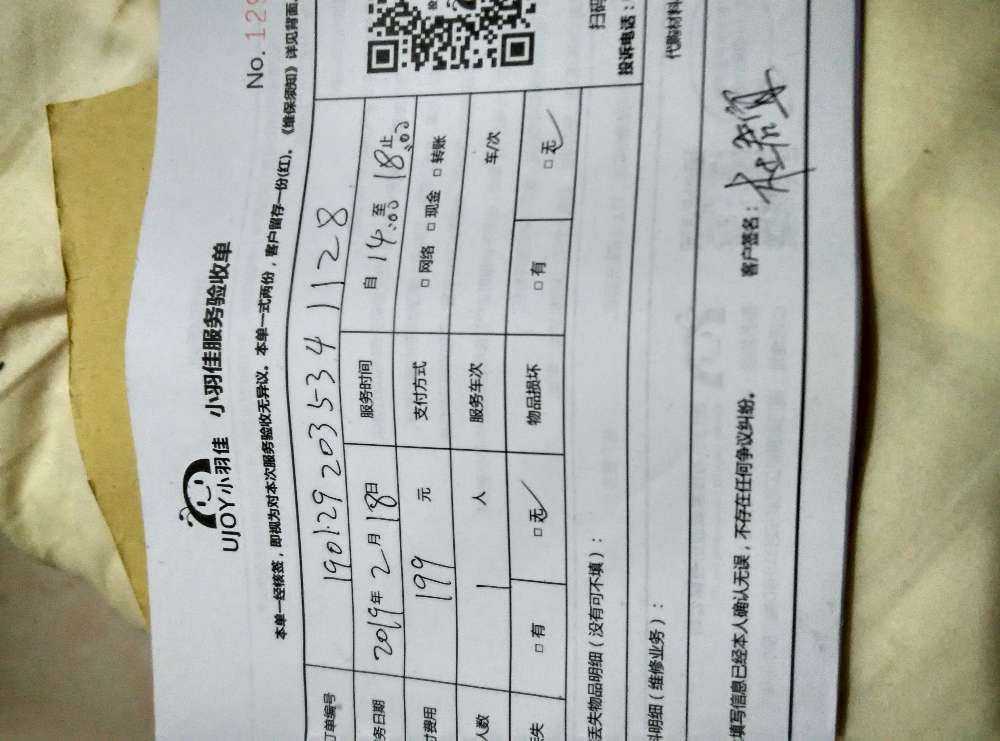 UJOY小羽佳 小羽佳服务验收单
No. 129
本单一经核签，即视为对本次服务验收无异议。本单一式两份，客户留存一份(红)。《维保须知》详见背面。
订单编号 190129203534 11128
务日期 2019年2月18日 服务时间 自14:00至18:00止
付费用 199元 支付方式 □网络 □现金 □转账
人数 1人 服务车次 车/次
丢失 □有 □无✓ 物品损坏 □有 □无✓
丢失物品明细（没有可不填）：
料明细（维修业务）：
填写信息已经本人确认无误，不存在任何争议纠纷。
客户签名：
扫码
投诉电话：
代购材料